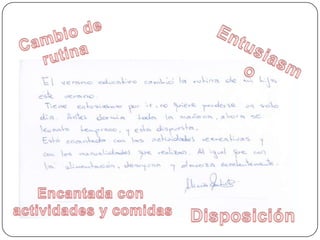 Cambio de
rutina
Entusiasm
o
El verano educativo cambió la rutina de mi hja
este verano.
Tiene entusiasmo por ir, no quiere perderse un solo
día. Antes dormía toda la mañana, ahora se
levanta temprano, y esta dispuesta.
Esta encantada con las actividades recreativas y
con las manualidades que realizan. Al igual que con
la alimentación, desayuna y almuerza excelentemente.
Encantada con
actividades y comidas
Disposición